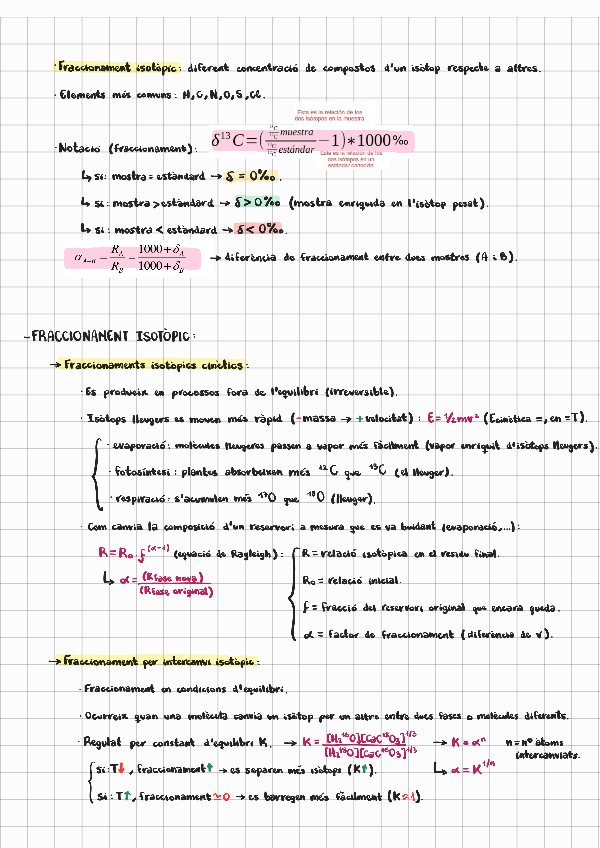 · Fraccionament isotòpic: diferent concentració de compostos d'un isòtop respecte a altres.
· Elements més comuns: H, C, N, O, S, Cl.
Esta es la relación de los
dos isótopos en la muestra
· Notació (fraccionament): δ¹³C=(¹³C/¹²C muestra / ¹³C/¹²C estándar −1)∗1000‰
Esta es la relación de los
dos isótopos en un
estándar conocido.
↳ si: mostra = estàndard → δ = 0‰.
↳ si: mostra > estàndard → δ > 0‰ (mostra enriquida en l'isòtop pesat).
↳ si: mostra < estàndard → δ < 0‰.
α_A-B = R_A/R_B = 1000+δ_A/1000+δ_B → diferència de fraccionament entre dues mostres (A i B).
- FRACCIONAMENT ISOTÒPIC:
→ Fraccionaments isotòpics cinètics:
· Es produeix en processos fora de l'equilibri (irreversible).
· Isòtops lleugers es moven més ràpid (-massa → +velocitat): E = 1/2mv² (Ecinètica =, en =T).
· evaporació: molècules lleugeres passen a vapor més fàcilment (vapor enriquit d'isòtops lleugers).
· fotosíntesi: plantes absorbeixen més ¹²C que ¹³C (el lleuger).
· respiració: s'acumulen més ¹⁷O que ¹⁸O (lleuger).
· Com canvia la composició d'un reservori a mesura que es va buidant (evaporació,...):
R = R₀ · f^(α-1) (equació de Rayleigh): R = relació isotòpica en el residu final.
↳ α = (Rfase nova)/(Rfase original)
R₀ = relació inicial.
f = fracció del reservori original que encara queda.
α = factor de fraccionament (diferència de v).
→ Fraccionament per intercanvi isotòpic:
· Fraccionament en condicions d'equilibri.
· Ocorreix quan una molècula canvia un isòtop per un altre entre dues fases o molècules diferents.
· Regulat per constant d'equilibri K. → K = [H₂¹⁶O][CaC¹⁸O₃]^1/3 / [H₂¹⁸O][CaC¹⁶O₃]^1/3 → K = αⁿ n = nº àtoms intercanviats.
↳ α = K^1/n
si: T↓, fraccionament↑ → es separen més isòtops (K↑).
si: T↑, fraccionament ≃0 → es barregen més fàcilment (K≃1).